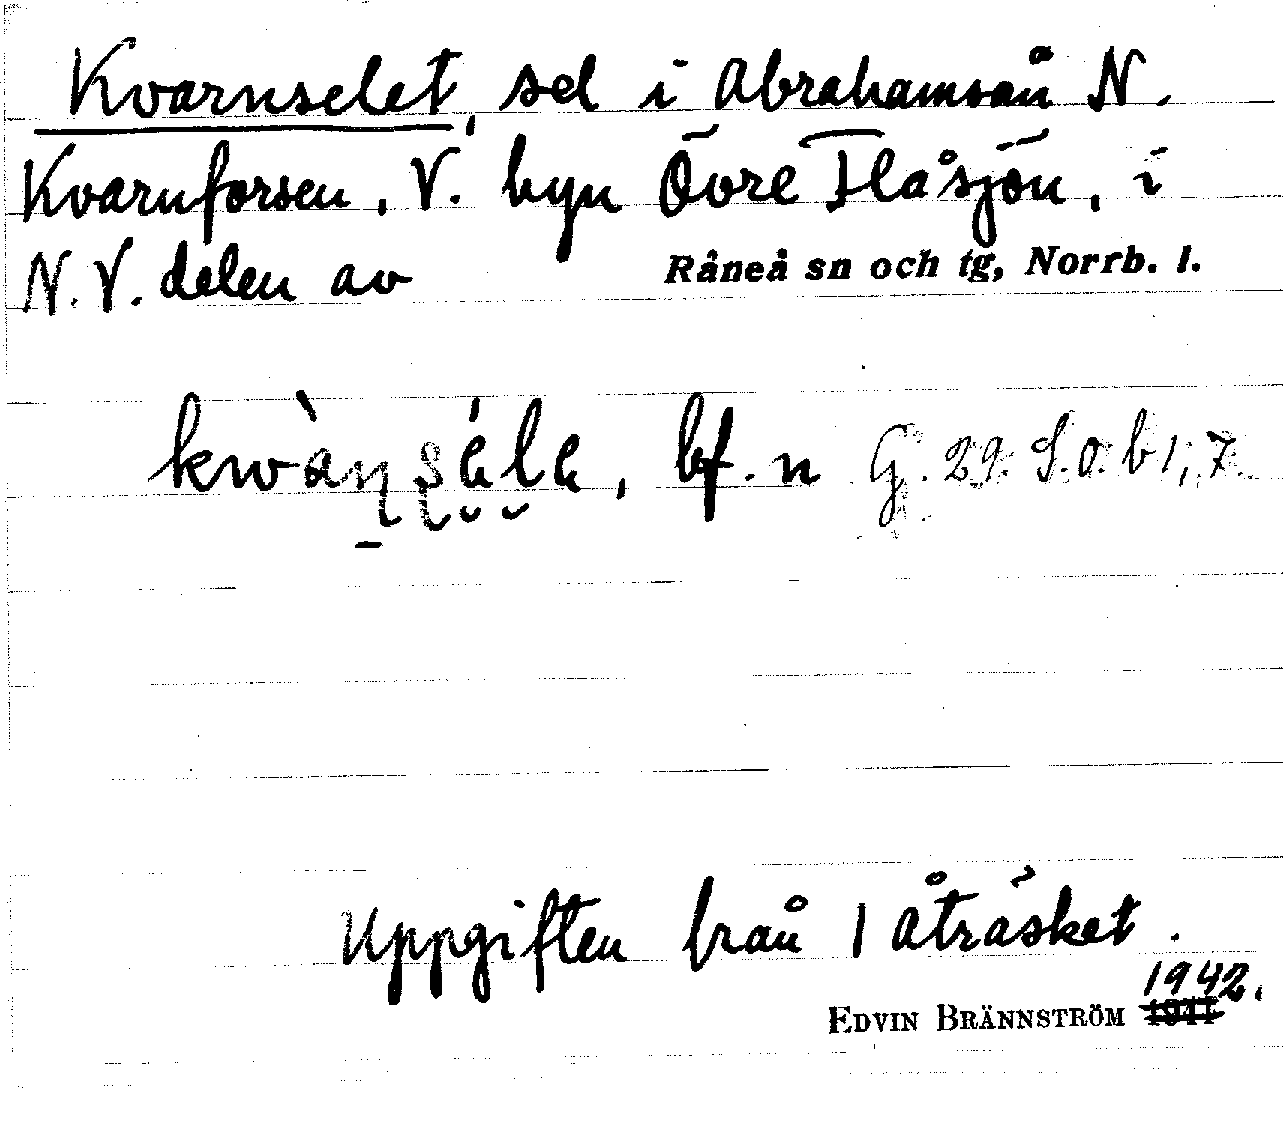 Kvarnselet, sel i Abrahamsån N.
Kvarnforsen, V. byn Övre Flåsjön, i
N.V. delen av Råneå sn och tg, Norrb. l.
bf. n G. 29. S.o. b1; 7.
Uppgiften från 1 åträsket.
1942.
EDVIN BRÄNNSTRÖM 1941